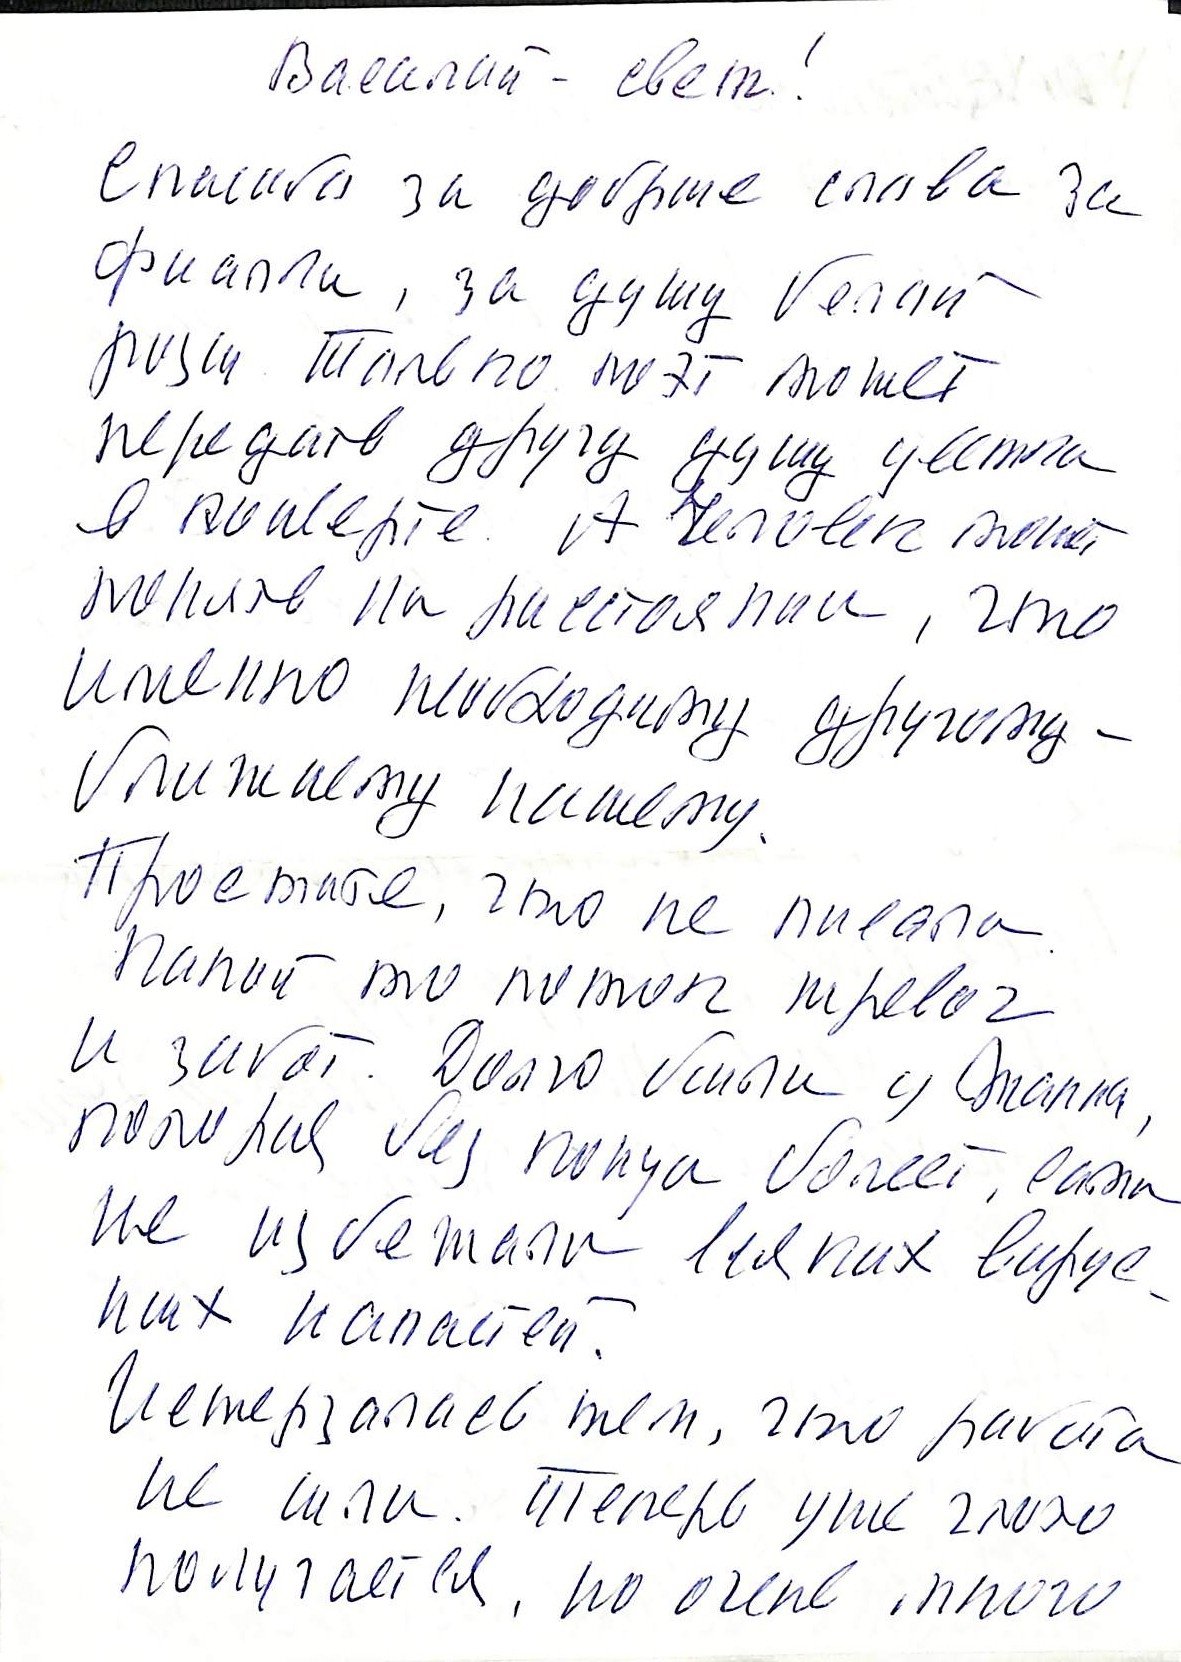 Василий - свет!
Спасибо за добрые слова за
фиалки, за душу белой
розы. Только поэт может
передать другу душу цветка
в конверте. А Человек может
понять на расстоянии, что
именно необходимо другому -
ближнему нашему.
Простите, что не писала.
Какой то поток тревог
и забот. Долго были у Жанны,
которая без конца болеет, сама
не избежала всяких вирус-
ных напастей.
Истерзалась тем, что работа
не шла. Теперь уже
получается, но очень много